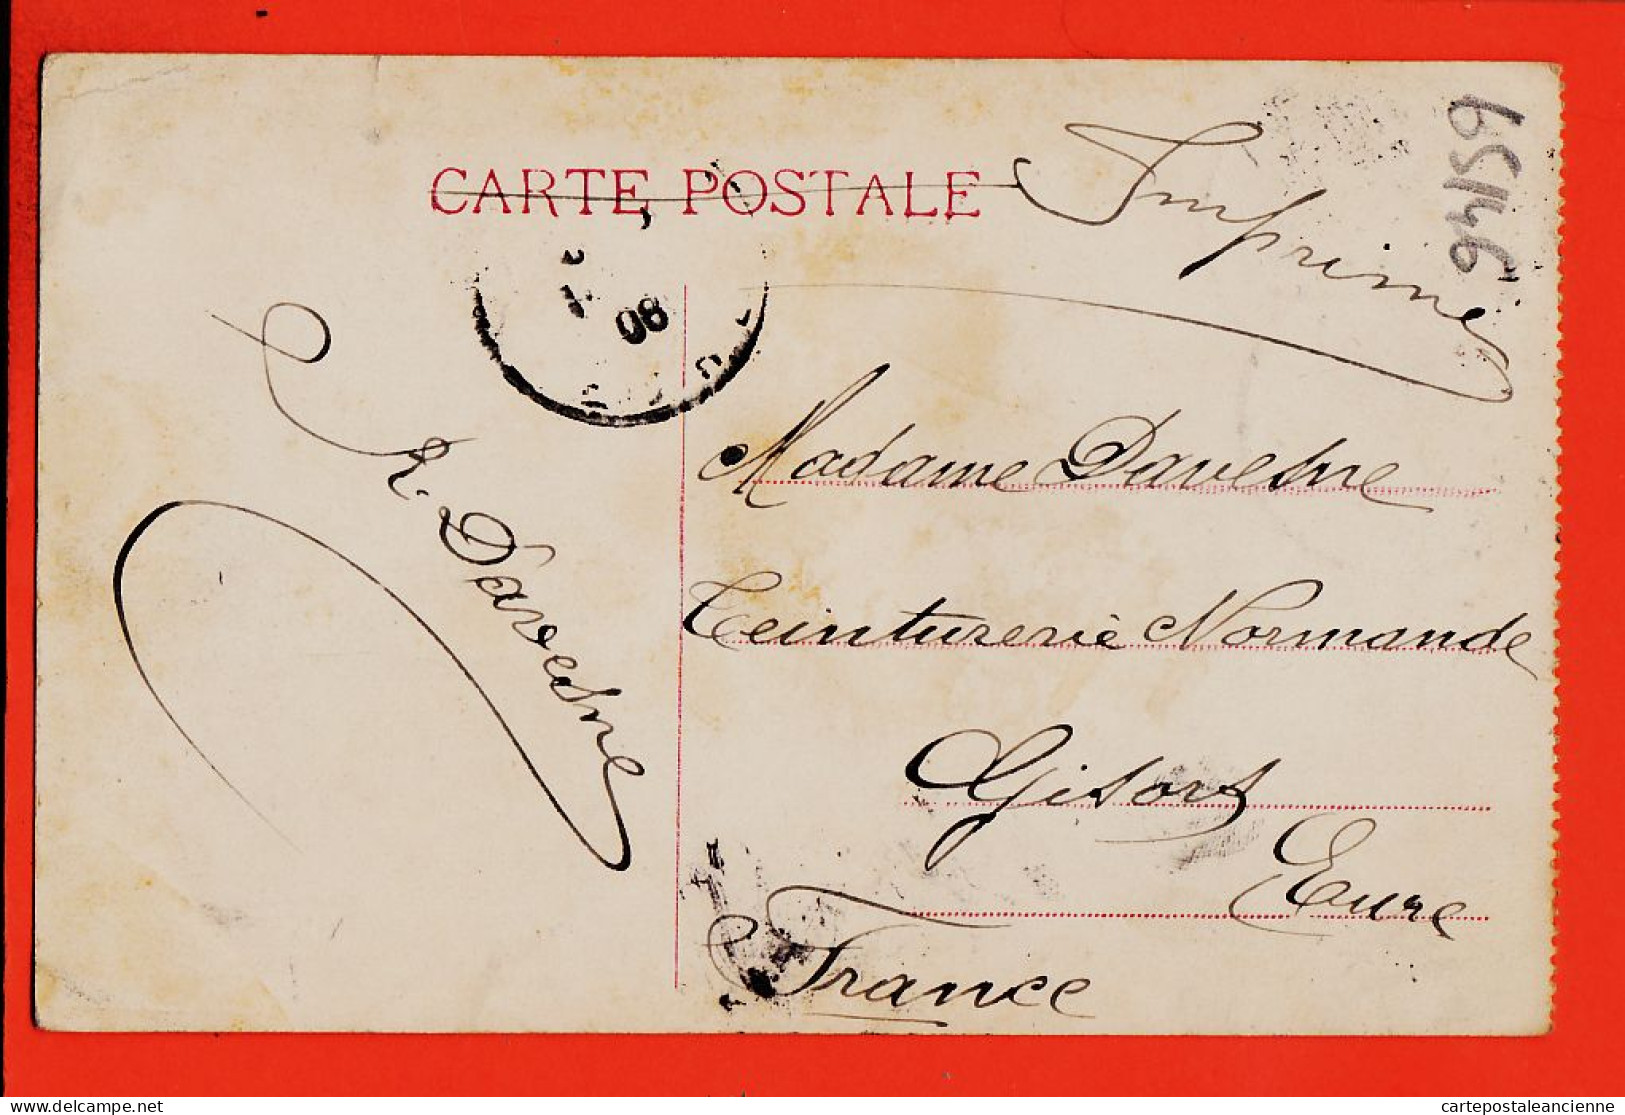 CARTE POSTALE
Imprimé
94159
08
R. Davesne
Madame Davesne
Teinturerie Normande
Gisors
Eure
France
delcampe.net
cartepostaleancienne